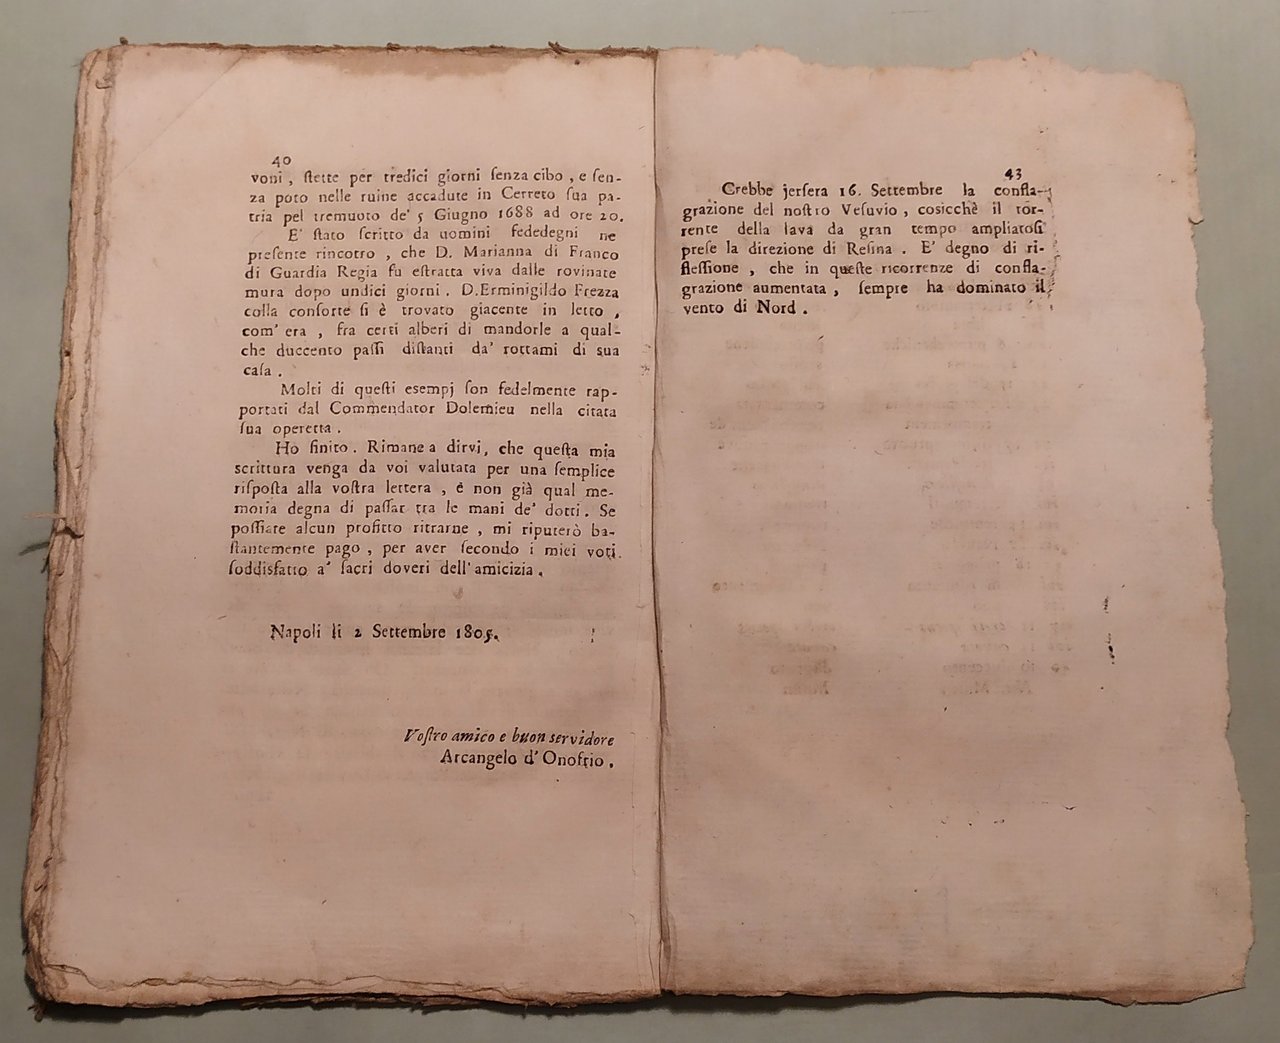 40
voni , ſtette per tredici giorni ſenza cibo , e ſen-
za poto nelle ruine accadute in Cerreto ſua pa-
tria pel tremuoto de' 5 Giugno 1688 ad ore 20.
E' ſtato ſcritto da uomini fededegni ne
preſente rincotro , che D. Marianna di Franco
di Guardia Regia fu eſtratta viva dalle rovinate
mura dopo undici giorni . D.Erminigildo Frezza
colla conſorte ſi è trovato giacente in letto ,
com' era , fra certi alberi di mandorle a qual-
che duccento paſſi diſtanti da' rottami di sua
caſa .
Molti di queſti esempj ſon fedelmente rap-
portati dal Commendator Dolemieu nella citata
ſua operetta .
Ho finito . Rimane a dirvi, che queſta mia
scrittura venga da voi valutata per una ſemplice
riſpoſta alla voſtra lettera , e non già qual me-
moria degna di paſſar tra le mani de' dotti . Se
poſſiate alcun profitto ritrarne , mi riputerò ba-
ſtantemente pago , per aver ſecondo i miei voti
ſoddisfatto a' ſacri doveri dell' amicizia .
Napoli li 2 Settembre 1805.
Voſtro amico e buon servidore
Arcangelo d' Onofrio .
43
Crebbe jerſera 16. Settembre la confla-
grazione del noſtro Veſuvio , cosicchè il tor-
rente della lava da gran tempo ampliatosi
preſe la direzione di Reſina . E' degno di ri-
fleſſione , che in queſte ricorrenze di confla-
grazione aumentata , ſempre ha dominato il
vento di Nord .